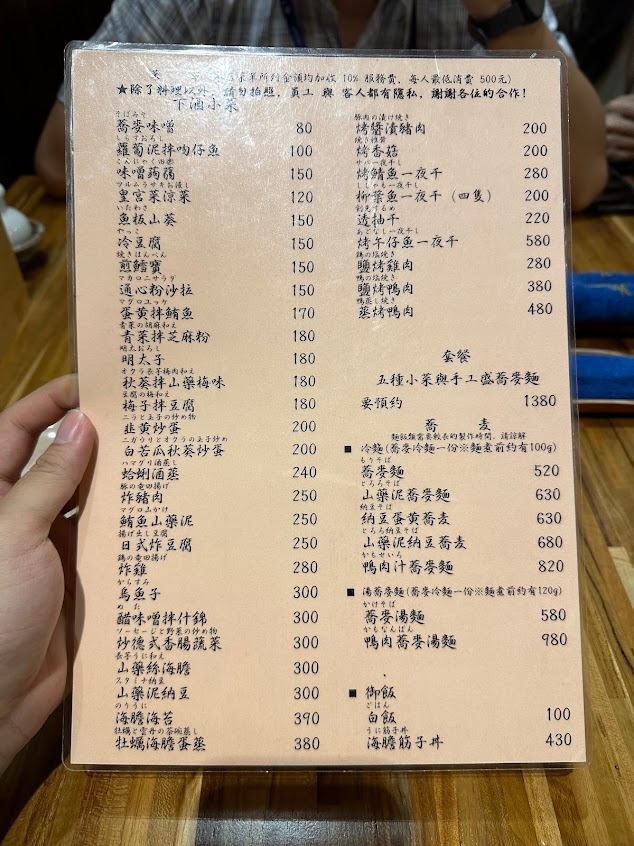 菜單所列金額均加收 10% 服務費、每人最低消費 500元)
★除了料理以外，請勿拍照，員工 與 客人都有隱私，謝謝各位的合作！
下酒小菜
そばみそ
蕎麥味噌 80
しらすおろし
蘿蔔泥拌吻仔魚 100
こんにゃく田楽
味噌蒟蒻 150
ツルムラサキお浸し
皇宮菜涼菜 120
いたわさ
魚板山葵 150
やっこ
冷豆腐 150
焼きはんぺん
煎鱈寶 150
マカロニサラダ
通心粉沙拉 150
マグロユッケ
蛋黃拌鮪魚 170
青菜の胡麻和え
青菜拌芝麻粉 180
明太おろし
明太子 180
オクラ長芋梅肉和え
秋葵拌山藥梅味 180
豆腐の梅和え
梅子拌豆腐 180
ニラと玉子の炒め物
韭黃炒蛋 200
ニガウリとオクラの玉子炒め
白苦瓜秋葵炒蛋 200
ハマグリ酒蒸し
蛤蜊酒蒸 240
豚の竜田揚げ
炸豬肉 250
マグロ山かけ
鮪魚山藥泥 250
揚げ出し豆腐
日式炸豆腐 250
鶏の竜田揚げ
炸雞 280
からすみ
烏魚子 300
ぬた
醋味噌拌什錦 300
ソーセージと野菜の炒め物
炒德式香腸蔬菜 300
長芋うに和え
山藥絲海膽 300
スタミナ納豆
山藥泥納豆 300
のりうに
海膽海苔 390
牡蠣と雲丹の茶碗蒸し
牡蠣海膽蛋蒸 380
豚肉の漬け焼き
烤醬漬豬肉 200
焼き椎茸
烤香菇 200
サバ一夜干し
烤鯖魚一夜干 280
ししゃも一夜干し
柳葉魚一夜干（四隻） 200
剣先するめ
透抽干 220
あどなし一夜干し
烤午仔魚一夜干 580
鶏の塩焼き
鹽烤雞肉 280
鴨の塩焼き
鹽烤鴨肉 380
鴨蒸し焼き
蒸烤鴨肉 480
套餐
五種小菜與手工盛蕎麥麵
要預約 1380
蕎 麥
麵飯類需要較長的製作時間，請諒解
■ 冷麵(蕎麥冷麵一份※麵煮前約有100g)
もりそば
蕎麥麵 520
とろろそば
山藥泥蕎麥麵 630
納豆そば
納豆蛋黃蕎麥 630
とろろ納豆そば
山藥泥納豆蕎麥 680
かもせいろ
鴨肉汁蕎麥麵 820
■ 湯蕎麥麵(蕎麥冷麵一份※麵煮前約有120g)
かけそば
蕎麥湯麵 580
かもなんばん
鴨肉蕎麥湯麵 980
■ 御飯
ごはん
白飯 100
うに筋子丼
海膽筋子丼 430